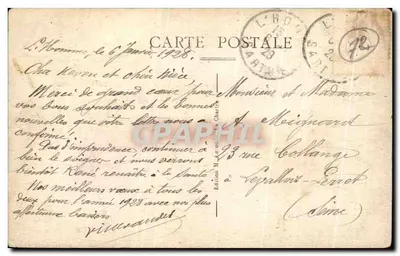 CARTE POSTALE
L'Homme le 6 Janvier 1928
Cher neveu et chère nièce
Merci de grand cœur pour
vos bons souhaits et les bonnes
nouvelles que votre lettre nous a
confirmé
Pas d'imprudence, continuer à
bien le soigner et nous verrons
bientôt René renaître à la santé
Nos meilleurs vœux à tous les
deux pour l'année 1928 avec nos plus
affectueux baisers
Monsieur et Madame
A. Mignard
23 rue Collange
à Levallois-Perret
(Seine)
12